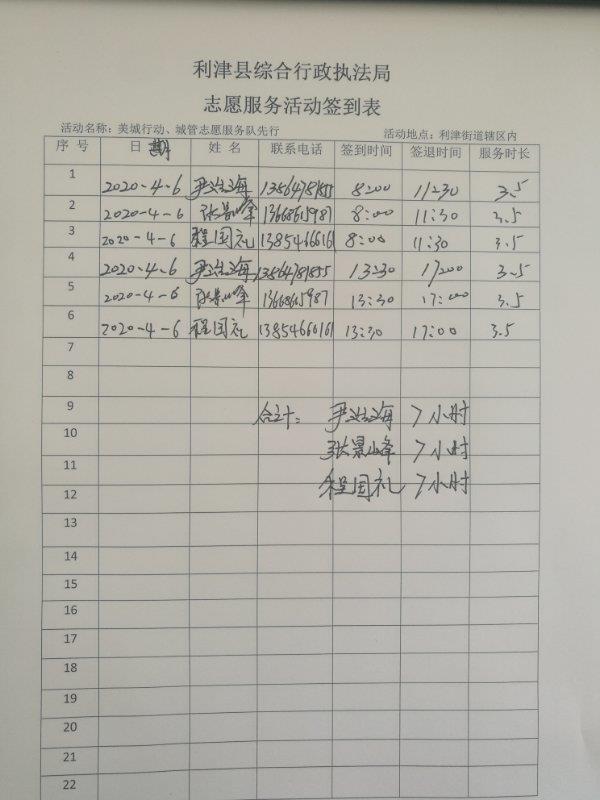 利津县综合行政执法局
志愿服务活动签到表
活动名称：美城行动、城管志愿服务队先行 活动地点：利津街道辖区内
序号 日期 姓名 联系电话 签到时间 签退时间 服务时长
1 2020-4-6 海 13564781855 8:00 11:30 3.5
2 2020-4-6 张景峰 13668615987 8:00 11:30 3.5
3 2020-4-6 程国礼 13854666161 8:00 11:30 3.5
4 2020-4-6 海 13564781855 13:30 17:00 3.5
5 2020-4-6 张景峰 13668615987 13:30 17:00 3.5
6 2020-4-6 程国礼 13854666161 13:30 17:00 3.5
7
8
9 合计： 海 7小时
10 张景峰 7小时
11 程国礼 7小时
12
13
14
15
16
17
18
19
20
21
22